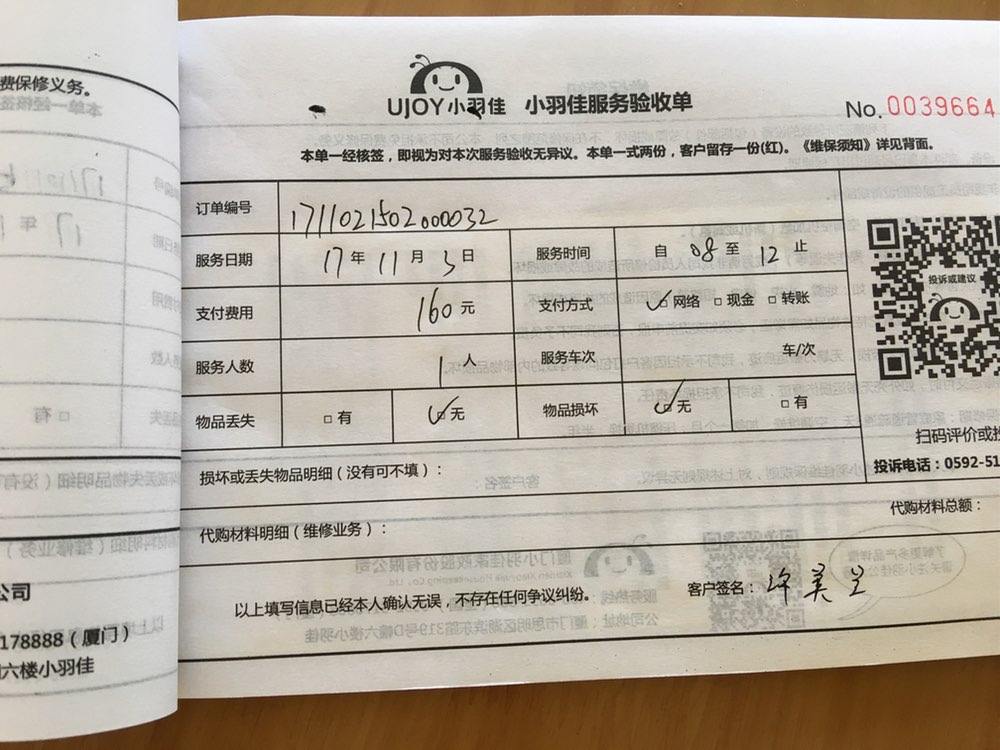 费保修义务。
UJOY小羽佳 小羽佳服务验收单
No.0039664
本单一经核签，即视为对本次服务验收无异议。本单一式两份，客户留存一份(红)。《维保须知》详见背面。
订单编号 1711021502000032
服务日期 17年11月3日 服务时间 自08至12止
支付费用 160元 支付方式 ☑网络 □现金 □转账
服务人数 1人 服务车次 车/次
物品丢失 □有 ☑无 物品损坏 ☑无 □有
投诉或建议
扫码评价或投
投诉电话：0592-51
损坏或丢失物品明细（没有可不填）：
代购材料明细（维修业务）：
代购材料总额：
以上填写信息已经本人确认无误，不存在任何争议纠纷。
客户签名：许美兰
公司
178888（厦门）
六楼小羽佳